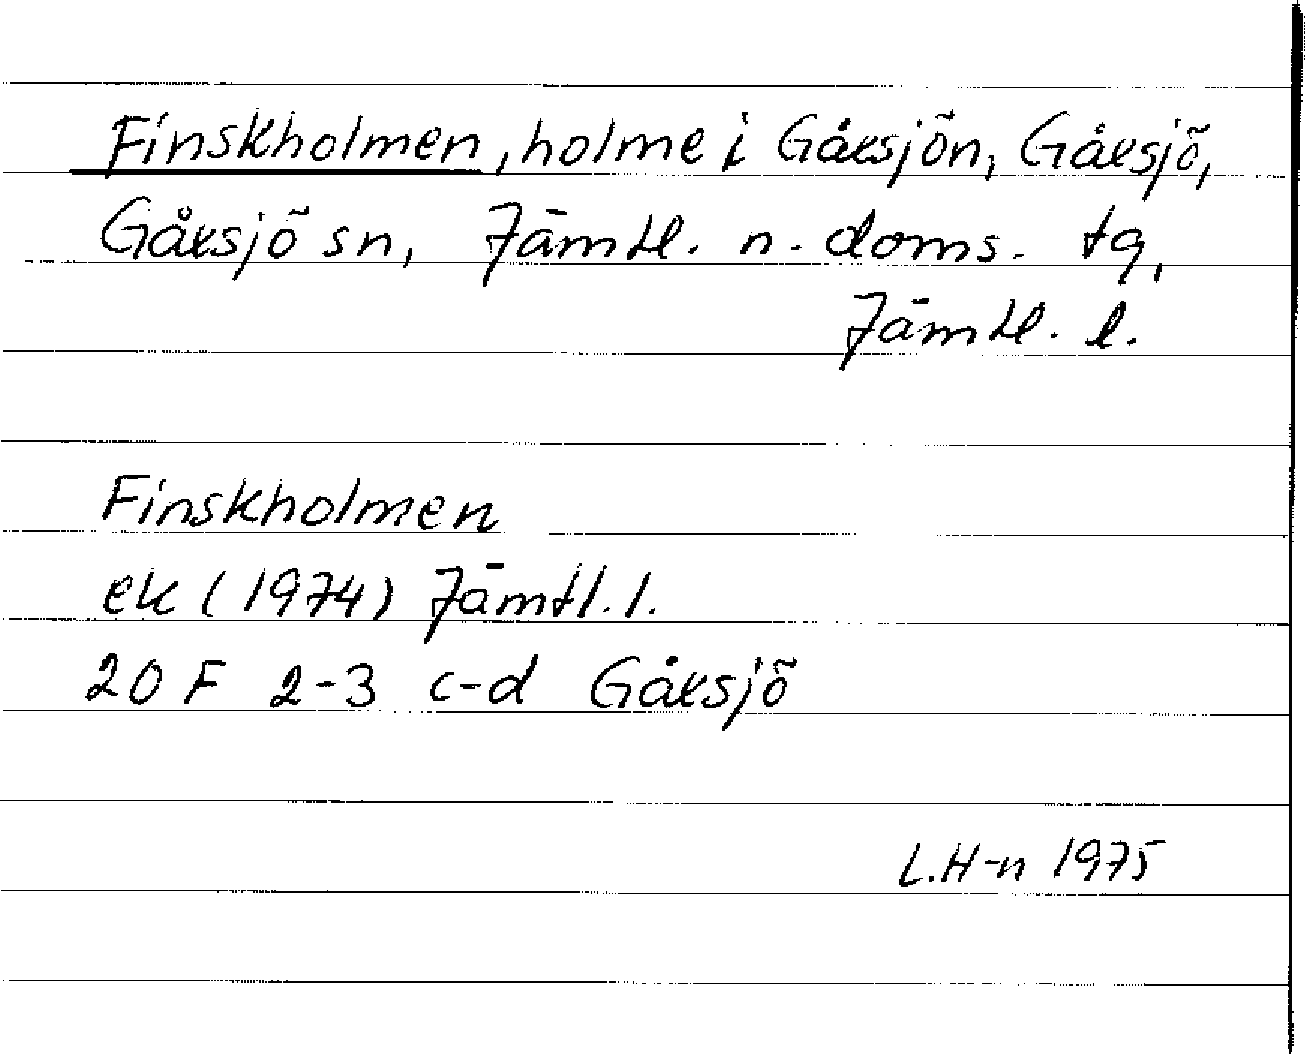 Finskholmen, holme i Gåxsjön, Gåxsjö,
Gåxsjö sn, Jämtl. n. doms. tg,
Jämtl. l.
Finskholmen
ek (1974) Jämtl. l.
20 F 2-3 c-d Gåxsjö
L.H-n 1975